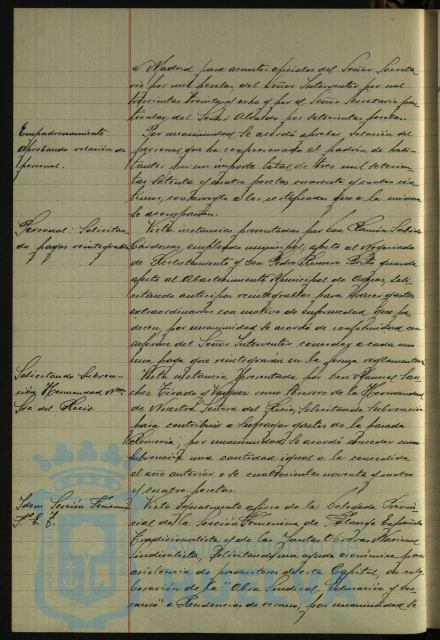 a Madrid para asuntos oficiales del Señor Secreta-
rio por mil pesetas, del Señor Interventor por mil
trescientas treinta y ocho y por el Señor Secretario par-
ticular del Señor Alcalde por setecientas pesetas.
Empadronamiento
aprobando relación de
personal.
Por unanimidad se acordó aprobar relación del
personal que ha confeccionado el padrón de habi-
tantes por un importe total de tres mil setecien-
tas setenta y cuatro pesetas cuarenta y cuatro cén-
timos, con arreglo a los certificados que a la misma
le acompañan.
Personal: Solicitan-
do pagas reintegrables
Vista instancias presentadas por Don Ramón
Cárdenas, empleado municipal, afecto al Negociado
de Reclutamiento y Don Pedro Romero Brito guarda
afecto al Abastecimiento Municipal de Aguas, soli-
citando anticipos reintegrables para hacer gastos
extraordinarios con motivo de enfermedad que pa-
decen, por unanimidad se acordó de conformidad con
informe del Señor Interventor conceder a cada uno
una paga que reintegrarán en la forma reglamentaria
Solicitando subven-
ción Hermandad Ntra.
Sra. del Rocío.
Vista instancia presentada por Don Manuel San-
chez Tirado y Vazquez como Tesorero de la Hermandad
de Nuestra Señora del Rocío, solicitando subvención
para contribuir a sufragar gastos de la parada
Romería, por unanimidad se acordó conceder como
subvención una cantidad igual a la concedida
el año anterior o sea cuatrocientas noventa y cuatro
y cuatro pesetas.
Idem Sección Femenina
F. E. T.
Visto igualmente oficio de la Delegada Provin-
cial de la Sección Femenina de Falange Española
Tradicionalista y de las Juntas Obreras Nacional
Sindicalista, solicitando una ayuda económica para
asistencia de productores de esta Capital, en coope-
ración de la "Obra Sindical, Educación y Des-
canso" a Residencias de verano, por unanimidad se